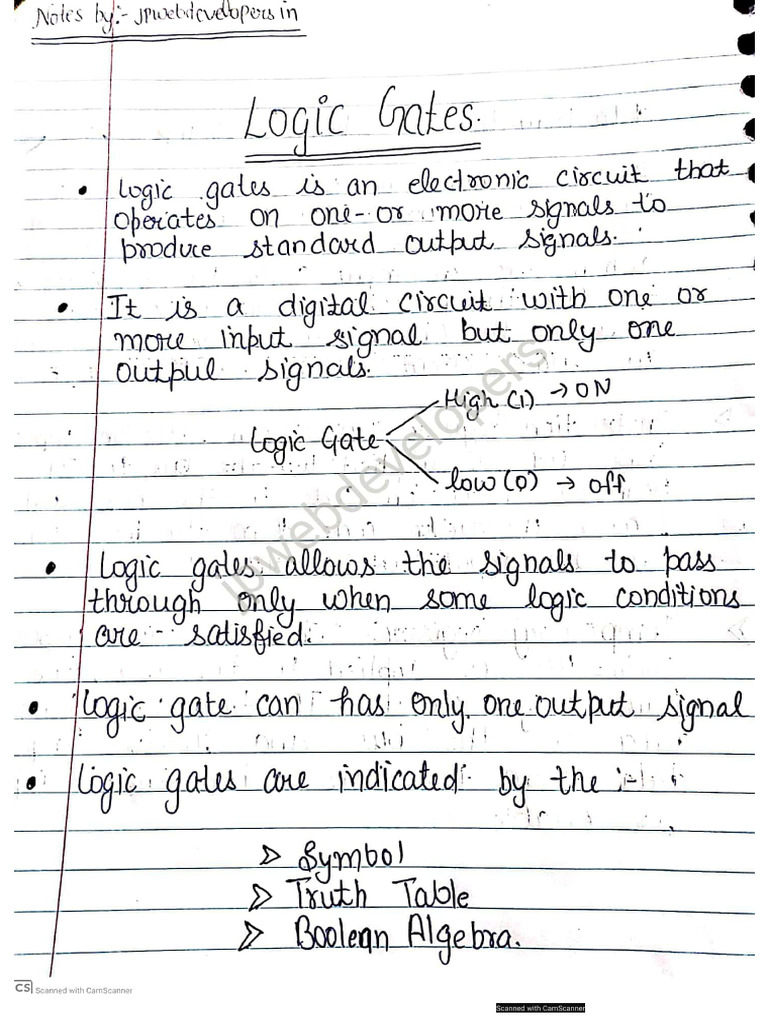 Notes by:- jpwebdevelopers in
Logic Gates.
• Logic gates is an electronic circuit that
operates on one-or more signals to
produce standard output signals.
• It is a digital circuit with one or
more input signal but only one
output signals.
High (1) → ON
Logic Gate
low (0) → off
• Logic gates allows the signals to pass
through only when some logic conditions
are satisfied.
• Logic gate can has only one output signal
• Logic gates are indicated by the :-
> Symbol
> Truth Table
> Boolean Algebra.
jpwebdevelopers
CS Scanned with CamScanner
Scanned with CamScanner